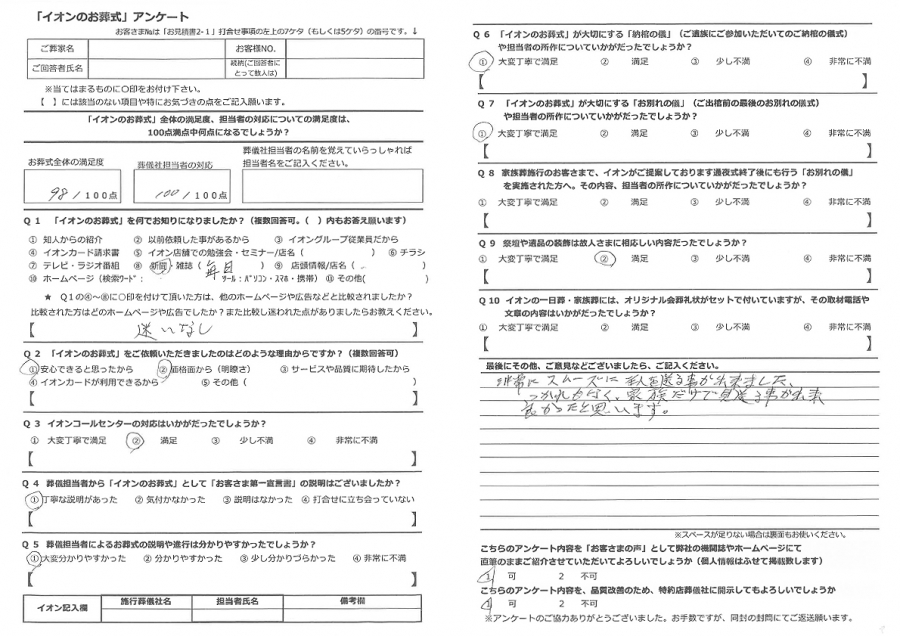 「イオンのお葬式」アンケート
お客さまNoは「お見積書2-1」打合せ事項の左上の7ケタ（もしくは5ケタ）の番号です。↓
ご葬家名 お客様NO.
ご回答者氏名 続柄(ご回答者にとって故人は)
※当てはまるものに○印をお付け下さい。
【 】には該当のない項目や特にお気づきの点をご記入願います。
「イオンのお葬式」全体の満足度、担当者の対応についての満足度は、
100点満点中何点になるでしょうか？
お葬式全体の満足度 葬儀社担当者の対応 葬儀社担当者の名前を覚えていらっしゃれば
担当者名をご記入ください。
98/100点 100/100点
Q1 「イオンのお葬式」を何でお知りになりましたか？（複数回答可。( )内もお答え願います）
① 知人からの紹介 ② 以前依頼した事があるから ③ イオングループ従業員だから
④ イオンカード請求書 ⑤ イオン店舗での勉強会・セミナー/店名（ ） ⑥ チラシ
⑦ テレビ・ラジオ番組 ⑧ 新聞 雑誌（ 毎日 ） ⑨ 店頭情報/店名（ ）
⑩ ホームページ（検索ワード： ツール：パソコン・スマホ・携帯） ⑪ その他( )
★ Q1の④～⑧に○印を付けて頂いた方は、他のホームページや広告などと比較されましたか？
比較された方はどのホームページや広告でしたか？また比較し迷われた点がありましたらお教えください。
【 迷いなし 】
Q2 「イオンのお葬式」をご依頼いただきましたのはどのような理由からですか？（複数回答可）
①安心できると思ったから ②価格面から（明瞭さ） ③サービスや品質に期待したから
④イオンカードが利用できるから ⑤その他（ ）
【 】
Q3 イオンコールセンターの対応はいかがだったでしょうか？
① 大変丁寧で満足 ② 満足 ③ 少し不満 ④ 非常に不満
【 】
Q4 葬儀担当者から「イオンのお葬式」として「お客さま第一宣言書」の説明はございましたか？
①丁寧な説明があった ②気付かなかった ③説明はなかった ④打合せに立ち会っていない
【 】
Q5 葬儀担当者によるお葬式の説明や進行は分かりやすかったでしょうか？
①大変分かりやすかった ②分かりやすかった ③少し分かりづらかった ④非常に不満
【 】
イオン記入欄 施行葬儀社名 担当者氏名 備考欄
Q6 「イオンのお葬式」が大切にする「納棺の儀」（ご遺族にご参加いただいてのご納棺の儀式）
や担当者の所作についていかがだったでしょうか？
① 大変丁寧で満足 ② 満足 ③ 少し不満 ④ 非常に不満
【 】
Q7 「イオンのお葬式」が大切にする「お別れの儀」（ご出棺前の最後のお別れの儀式）
や担当者の所作についていかがだったでしょうか？
① 大変丁寧で満足 ② 満足 ③ 少し不満 ④ 非常に不満
【 】
Q8 家族葬施行のお客さまで、イオンがご提案しております通夜式終了後にも行う「お別れの儀」
を実施された方へ。その内容、担当者の所作についていかがだったでしょうか？
① 大変丁寧で満足 ② 満足 ③ 少し不満 ④ 非常に不満
【 】
Q9 祭壇や遺品の装飾は故人さまに相応しい内容だったでしょうか？
① 大変丁寧で満足 ② 満足 ③ 少し不満 ④ 非常に不満
【 】
Q10 イオンの一日葬・家族葬には、オリジナル会葬礼状がセットで付いていますが、その取材電話や
文章の内容はいかがだったでしょうか？
① 大変丁寧で満足 ② 満足 ③ 少し不満 ④ 非常に不満
【 】
最後にその他、ご意見などございましたら、ご記入ください。
非常にスムーズに主人を送る事が出来ました、
つかれもなく、家族だけで見送る事が出来
良かったと思います。
※スペースが足りない場合は裏面もお使いください。
こちらのアンケート内容を「お客さまの声」として弊社の機関誌やホームページにて
直筆のままご紹介させていただいてよろしいでしょうか（個人情報はふせて掲載致します）
1 可 2 不可
こちらのアンケート内容を、品質改善のため、特約店葬儀社に開示してもよろしいでしょうか
1 可 2 不可
※アンケートのご協力ありがとうございました。お手数ですが、同封の封筒にてご返送願います。